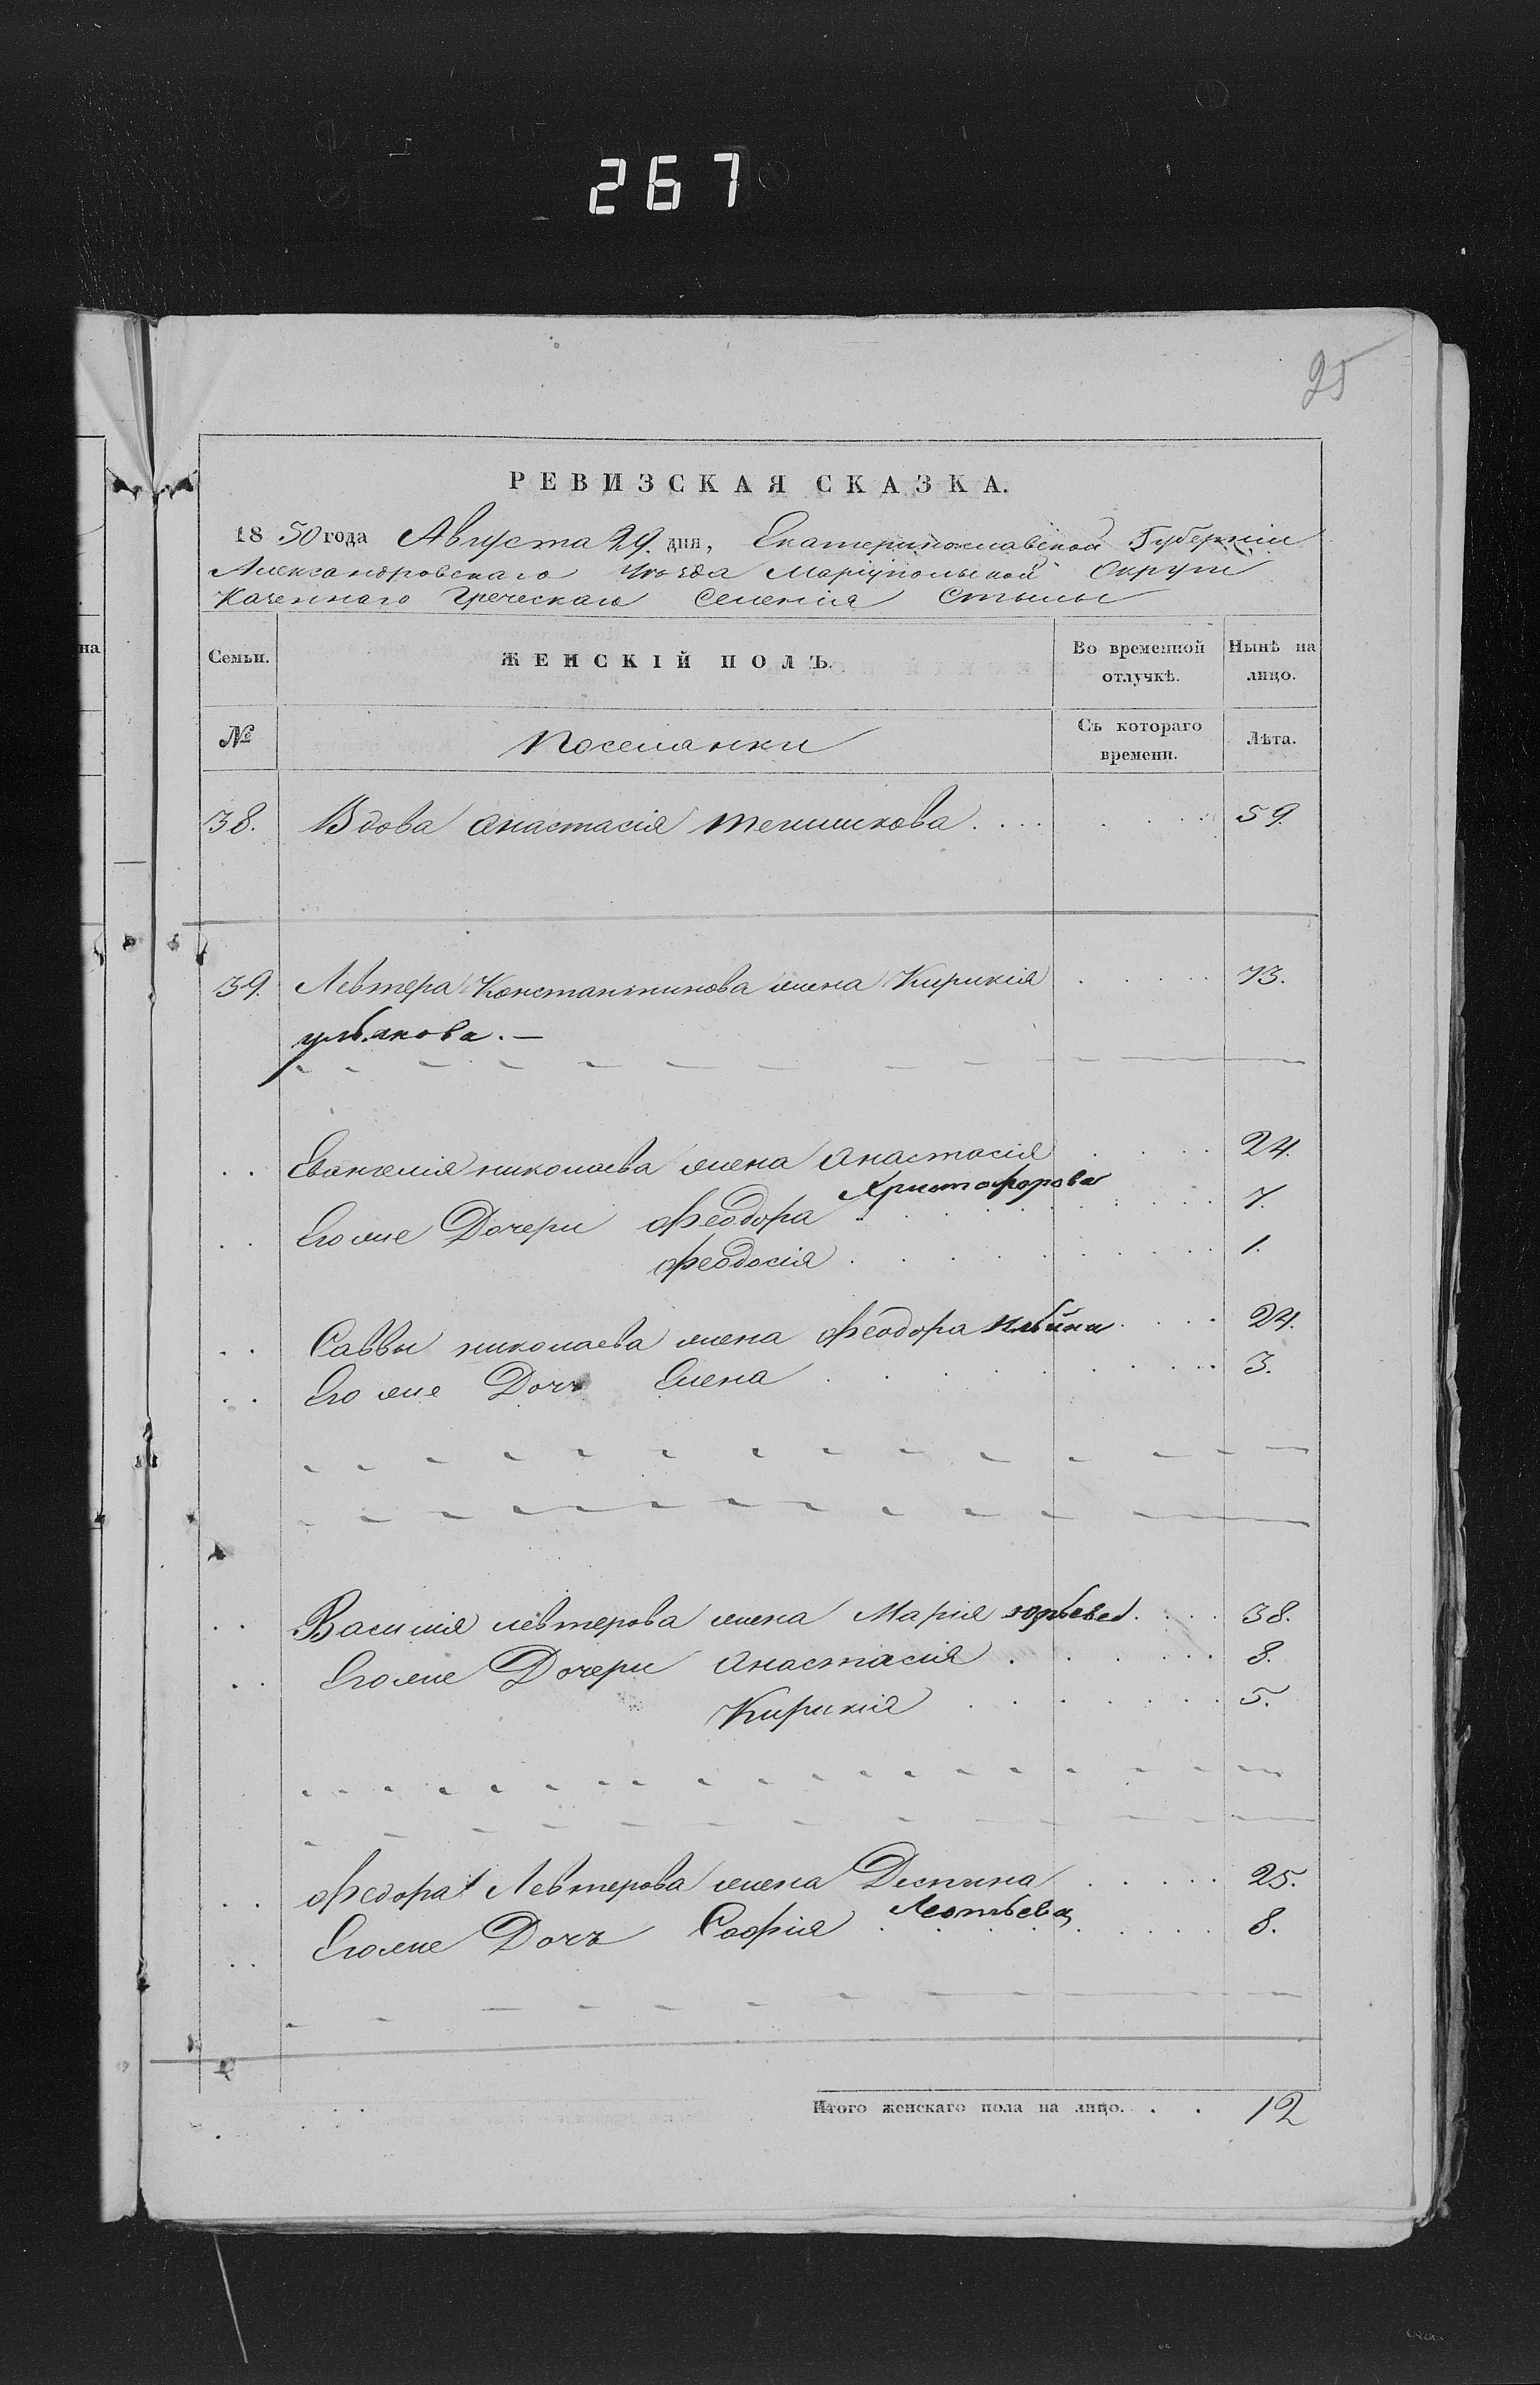 267
25
РЕВИЗСКАЯ СКАЗКА.
1850 года Августа 29. дня, Екатеринославской Губерніи
Александровскаго Уѣзда Маріупольской Округи
Казеннаго Греческаго Селенія Стылы
на
Семьи.
ЖЕНСКІЙ ПОЛЪ.
Во временной отлучкѣ.
Нынѣ на лицо.
№
Поселянки
Съ котораго времени.
Лѣта.
38. Вдова Анастасія . . . . 59.
39. Левтера Константинова жена Кирикія . . . . . 73.
.—
. . Евангелія Николаева жена Анастасія . . . . 24.
Христофорова
. . Его же Дочери Феодора . . . . . . . 7.
Феодосія . . . . . . . 1.
. . Саввы Николаева жена Феодора Ильина . . . . 24.
. . Его же Дочь Елена . . . . . . . 3.
. . Василія Левтерова жена Марія Юрьева . . . . 38.
. . Его же Дочери Анастасія . . . . . . 8.
Кирикія . . . . . . 5.
. . Федора Левтерова жена Деспина . . . . . 25.
Леонтьева
. . Его же Дочь Софія . . . . . . . 8.
Итого женскаго пола на лицо. . . 12